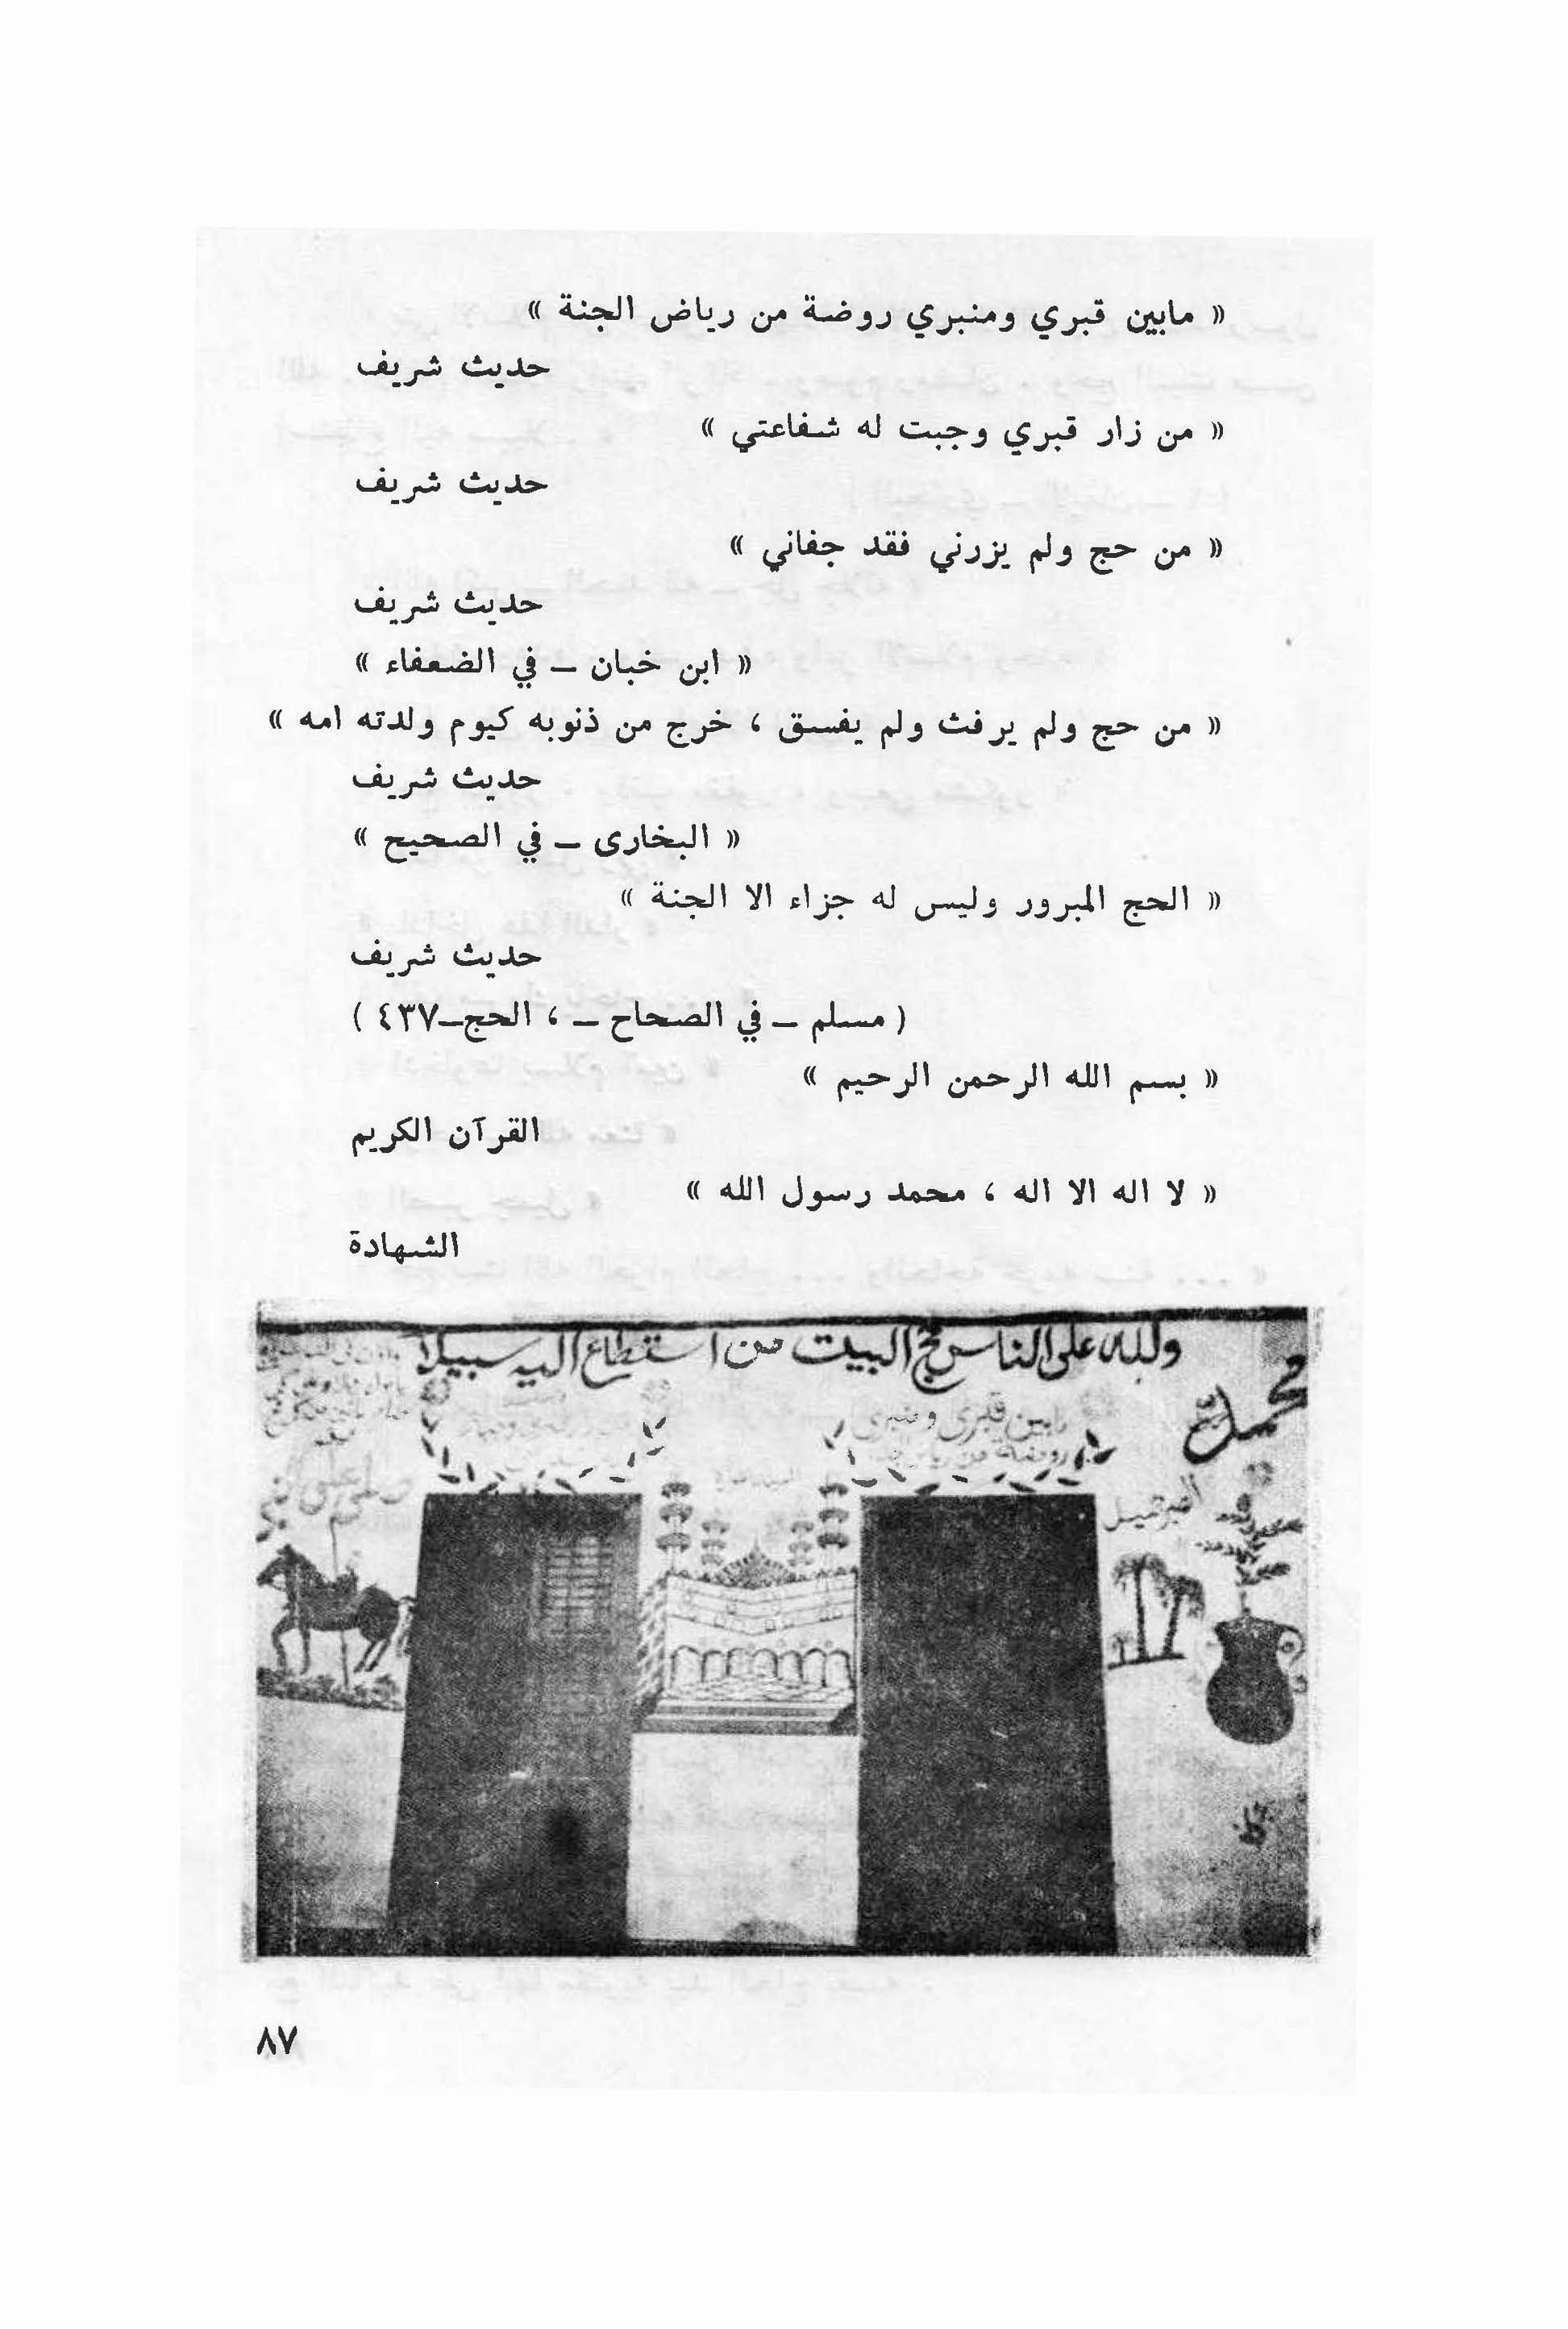 « مابين قبري ومنبري روضة من رياض الجنة »
حديث شريف
« من زار قبري وجبت له شفاعتي »
حديث شريف
« من حج ولم يزرني فقد جفاني »
حديث شريف
« ابن خبان ــ في الضعفاء »
« من حج ولم يرفث ولم يفسق ، خرج من ذنوبه كيوم ولدته امه »
حديث شريف
« البخارى ــ في الصحيح »
« الحج المبرور وليس له جزاء الا الجنة »
حديث شريف
( مسلم ــ في الصحاح ــ ، الحج ــ ٤٣٧ )
« بسم الله الرحمن الرحيم »
القرآن الكريم
« لا اله الا اله ، محمد رسول الله »
الشهادة
ولله على الناس حج البيت من استطاع اليه سبيلا
محمد
مابين قبري ومنبري
روضة من
الصبر جميل
٨٧